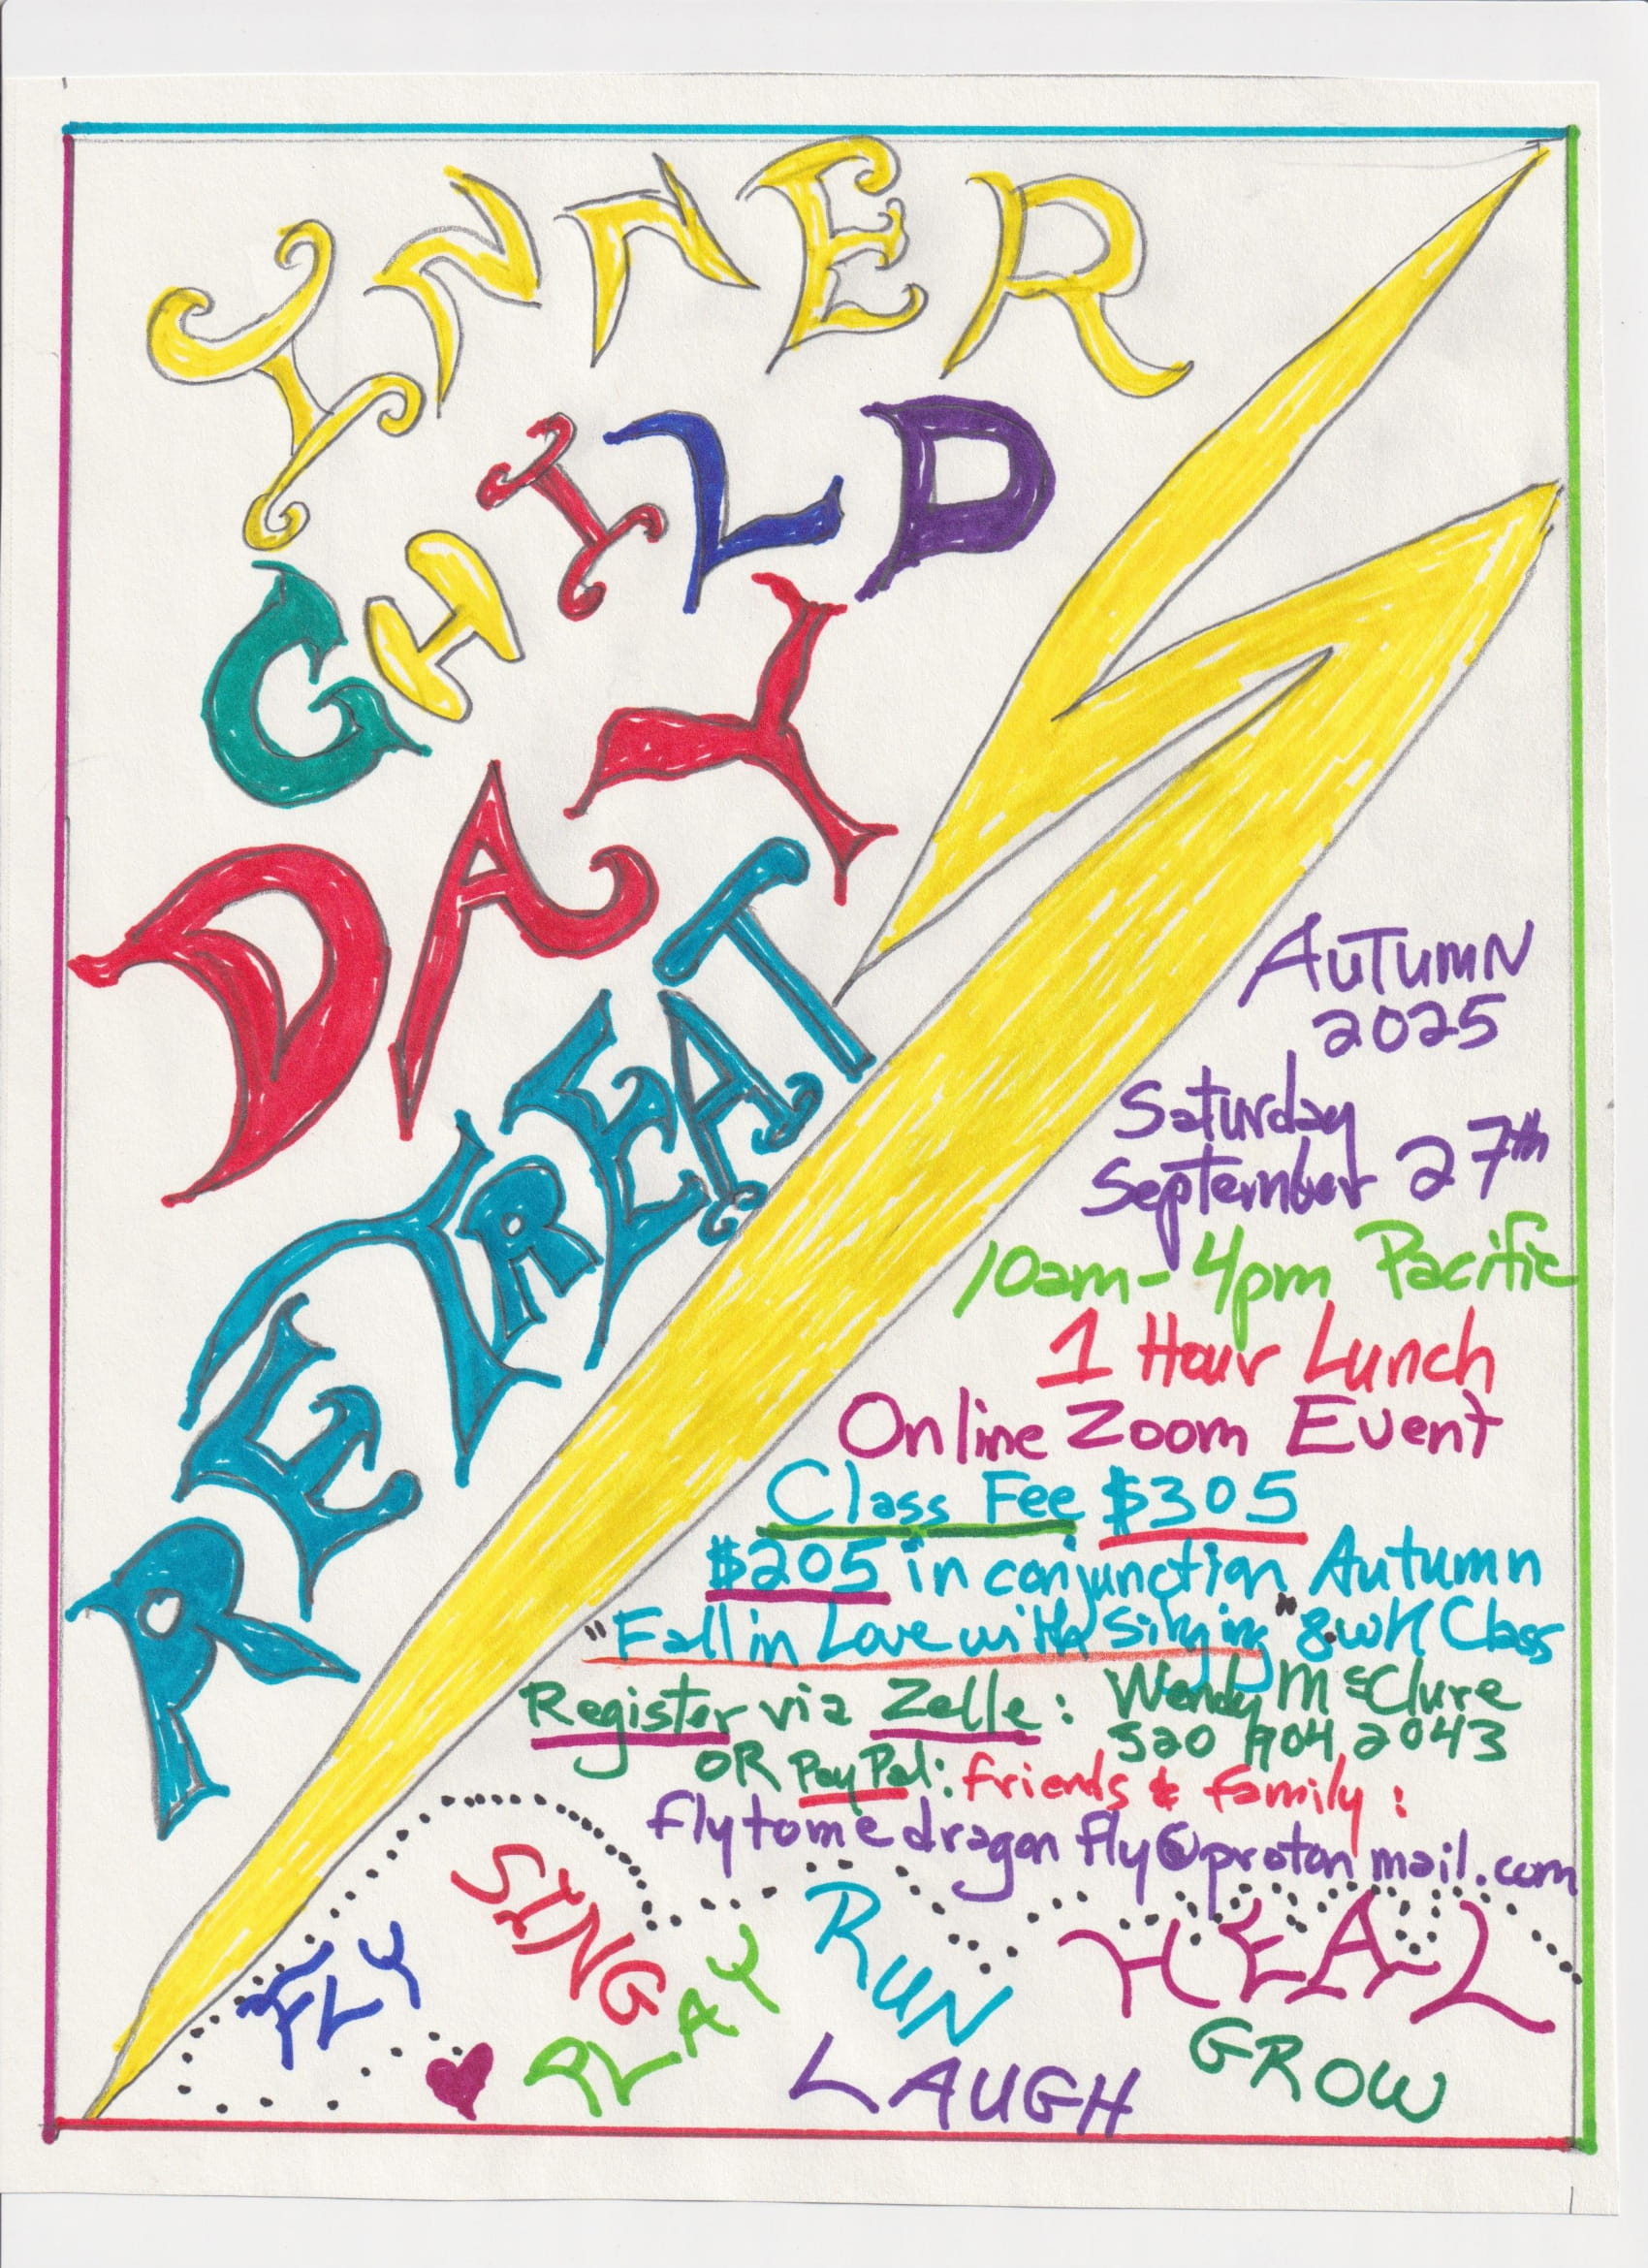 INNER
CHILD
DAY
RETREAT
AUTUMN
2025
Saturday
September 27th
10am - 4pm Pacific
1 Hour Lunch
Online Zoom Event
Class Fee $305
$205 in conjunction Autumn
"Fall in Love with Singing" 8 wk Class
Register via Zelle: Wendy McClure
520 904 2043
OR PayPal: friends & family:
flytomedragonfly@protonmail.com
FLY
SING
PLAY
RUN
LAUGH
HEAL
GROW